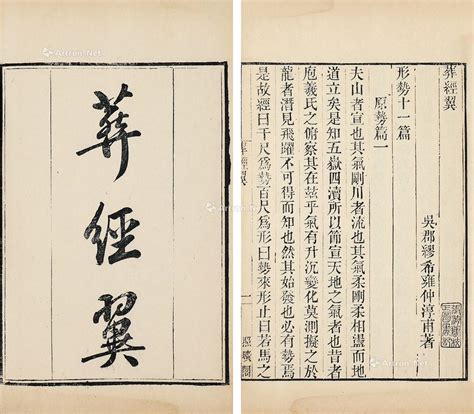 葬經翼
葬經翼
吳郡繆希雍仲淳甫著
形勢十一篇
原勢篇一
夫山者宣也其氣剛川者流也其氣柔剛柔相盪而地
道立矣是知五嶽四瀆所以節宣天地之氣者也昔者
庖羲氏之俯察其在茲乎氣有升沉變化莫測擬之於
龍者潛見飛躍不可得而知也然其始發也必有勢焉
是故經曰千尺爲勢百尺爲形曰勢來形止曰若馬之
葬經翼
一
照曠閣
Artron.Net
Artron.Net